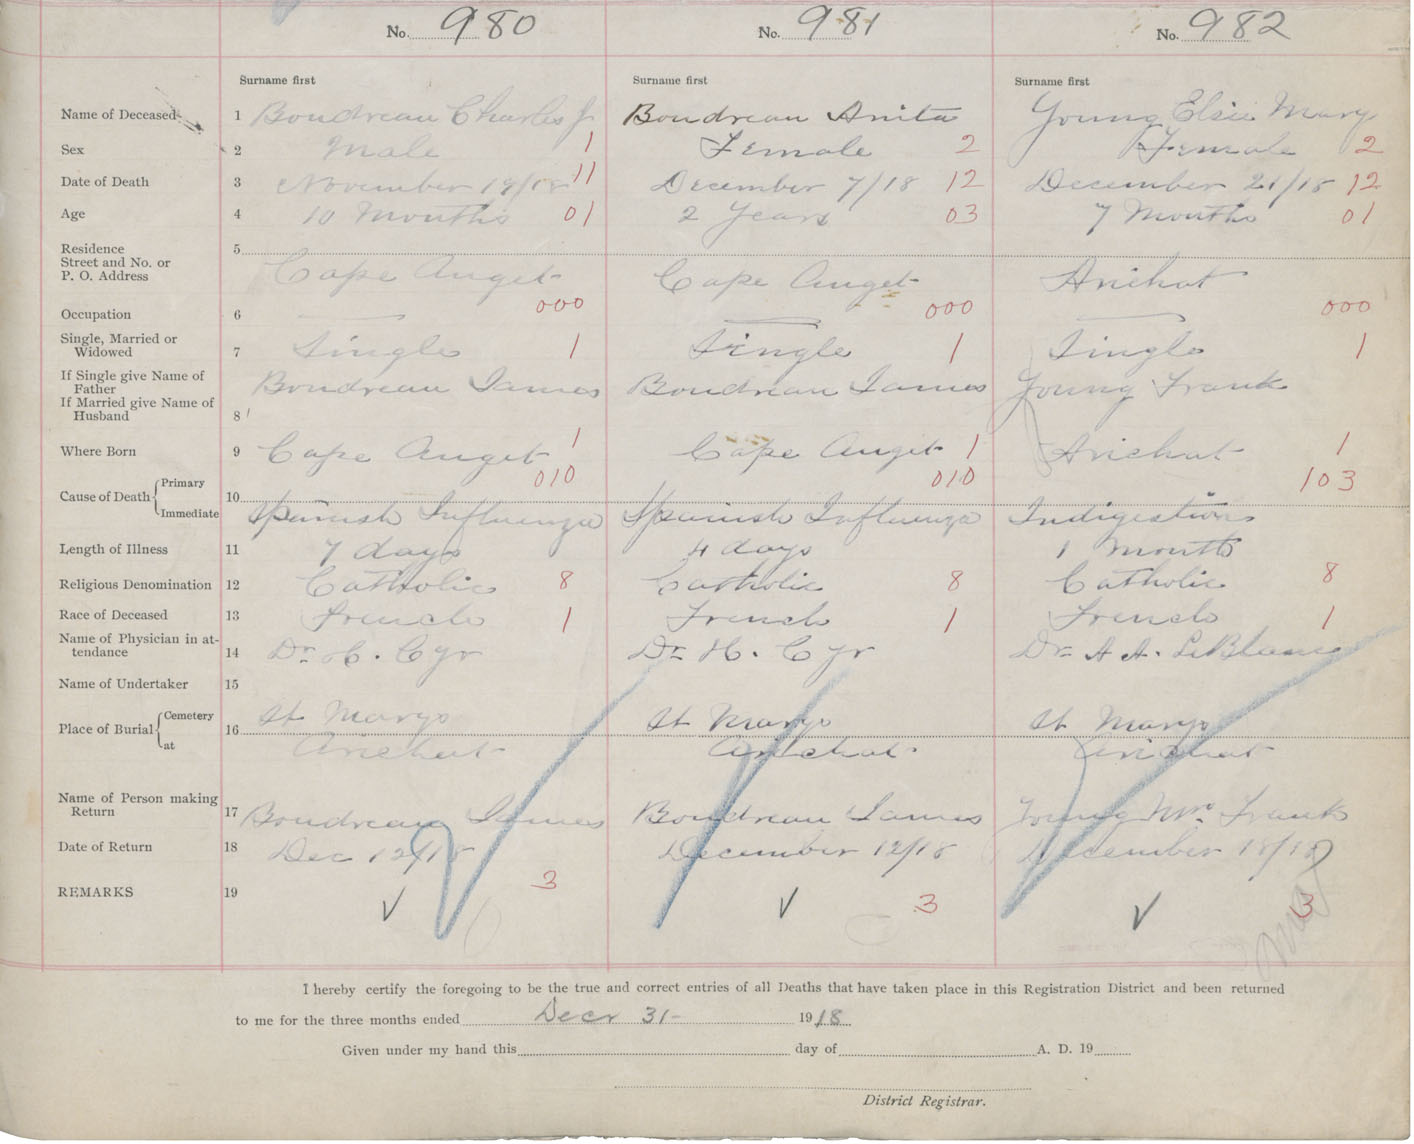 No. 980 No. 981 No. 982
Surname first Surname first Surname first
Name of Deceased 1 Boudreau Charles J Boudreau Anita Young Elsie Mary
Sex 2 Male 1 Female 2 Female 2
Date of Death 3 November 19/18 11 December 7/18 12 December 21/18 12
Age 4 10 Months 01 2 Years 03 7 Months 01
Residence 5
Street and No. or
P. O. Address Cape Auget Cape Auget Arichat
000 000 000
Occupation 6
Single, Married or
Widowed 7 Single 1 Single 1 Single 1
If Single give Name of
Father Boudreau James Boudreau James Young Frank
If Married give Name of
Husband 8
Where Born 9 Cape Auget 1 Cape Auget 1 Arichat 1
Primary 010 010 103
Cause of Death 10
Immediate Spanish Influenza Spanish Influenza Indigestion
Length of Illness 11 7 days 4 days 1 Month
Religious Denomination 12 Catholic 8 Catholic 8 Catholic 8
Race of Deceased 13 French 1 French 1 French 1
Name of Physician in at-
tendance 14 Dr H. Cyr Dr H. Cyr Dr A A. LeBlanc
Name of Undertaker 15
Cemetery St Marys St Marys St Marys
Place of Burial 16
at Arichat Arichat Arichat
Name of Person making
Return 17 Boudreau James Boudreau James Young Mr. Frank
Date of Return 18 Dec 12/18 December 12/18 December 18/18
REMARKS 19 3 3 3
I hereby certify the foregoing to be the true and correct entries of all Deaths that have taken place in this Registration District and been returned
to me for the three months ended Decr 31- 1918
Given under my hand this day of A. D. 19
District Registrar.